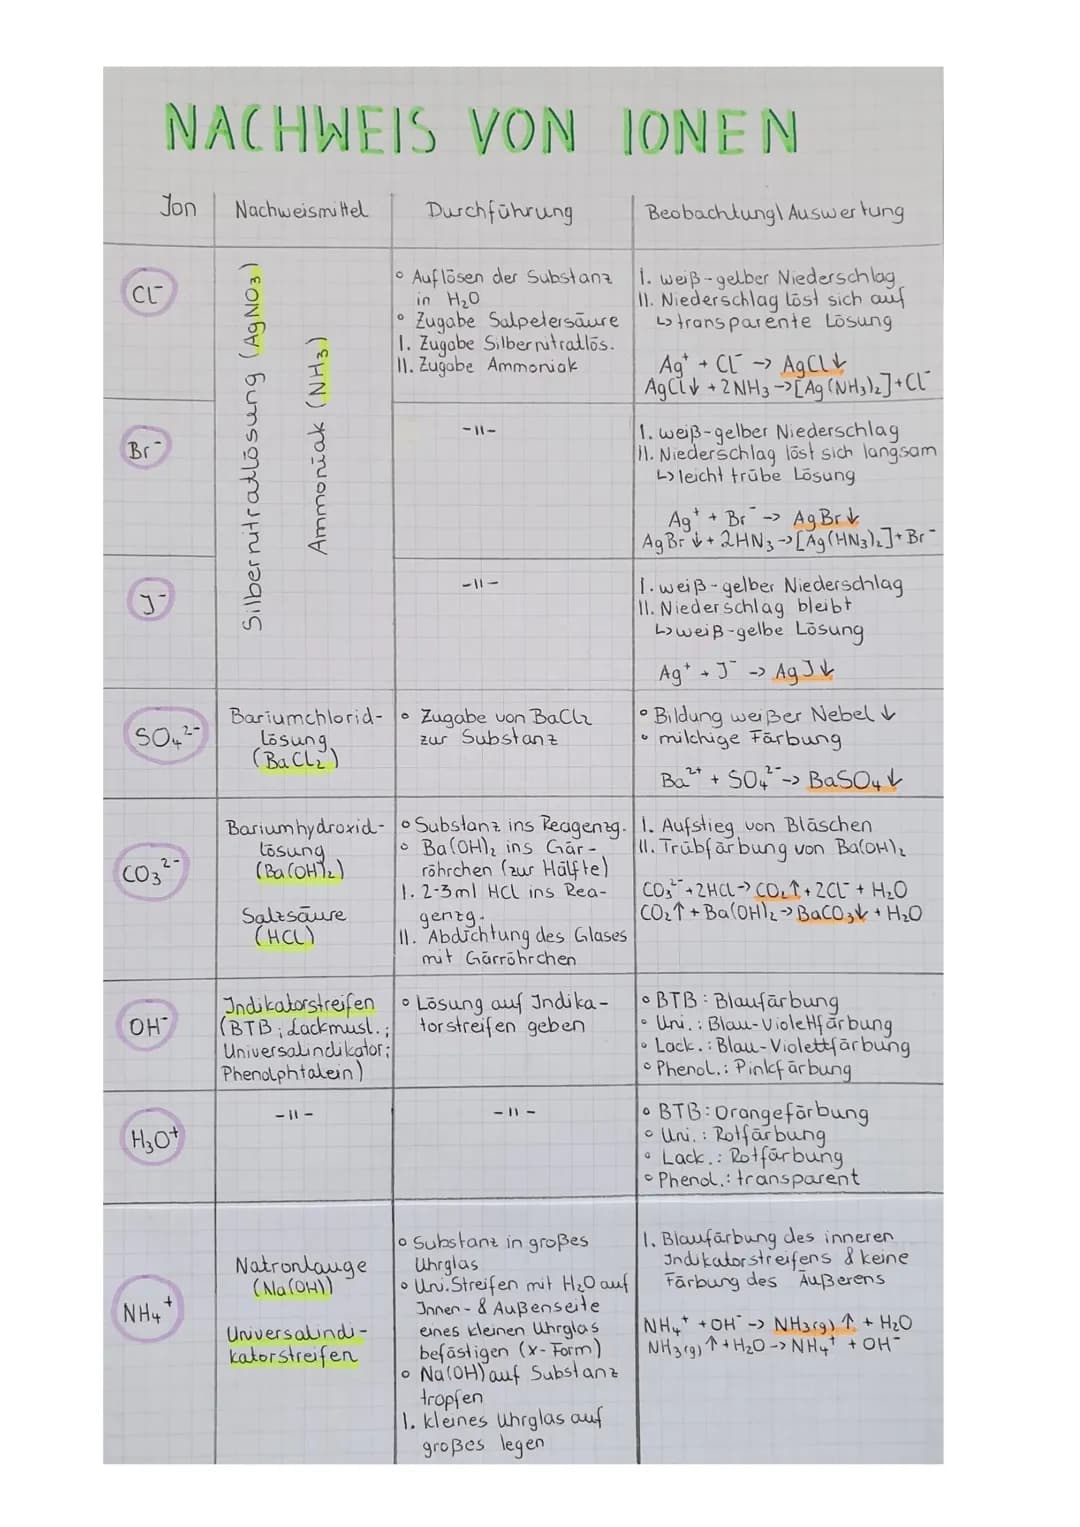 NACHWEIS VON IONEN
Jon
Nachweismittel
Durchführung
Beobachtung\ Auswertung
Cl⁻
Silbernitratlösung (AgNO₃)
Ammoniak (NH₃)
° Auflösen der Substanz
in H₂O
° Zugabe Salpetersäure
I. Zugabe Silbernitratlös.
II. Zugabe Ammoniak
I. weiß-gelber Niederschlag
II. Niederschlag löst sich auf
↳ transparente Lösung
Ag⁺ + Cl⁻ → AgCl↓
AgCl↓ + 2NH₃ → [Ag(NH₃)₂] + Cl⁻
Br⁻
-11-
I. weiß-gelber Niederschlag
II. Niederschlag löst sich langsam
↳ leicht trübe Lösung
Ag⁺ + Br⁻ → AgBr↓
AgBr↓ + 2HN₃ → [Ag(HN₃)₂] + Br⁻
J⁻
-11-
I. weiß-gelber Niederschlag
II. Niederschlag bleibt
↳ weiß-gelbe Lösung
Ag⁺ + J⁻ → AgJ↓
SO₄²⁻
Bariumchlorid-
lösung
(BaCl₂)
° Zugabe von BaCl₂
zur Substanz
° Bildung weißer Nebel ↓
° milchige Färbung
Ba²⁺ + SO₄²⁻ → BaSO₄↓
CO₃²⁻
Bariumhydroxid-
lösung
(Ba(OH)₂)
Salzsäure
(HCl)
° Substanz ins Reagenzg.
° Ba(OH)₂ ins Gär-
röhrchen (zur Hälfte)
I. 2-3ml HCl ins Rea-
genzg.
II. Abdichtung des Glases
mit Gärröhrchen
I. Aufstieg von Bläschen
II. Trübfärbung von Ba(OH)₂
CO₃²⁻ + 2HCl → CO₂↑ + 2Cl⁻ + H₂O
CO₂↑ + Ba(OH)₂ → BaCO₃↓ + H₂O
OH⁻
Indikatorstreifen
(BTB; Lackmusl.;
Universalindikator;
Phenolphtalein)
° Lösung auf Indika-
torstreifen geben
° BTB: Blaufärbung
° Uni.: Blau-Violettfärbung
° Lack.: Blau-Violettfärbung
° Phenol.: Pinkfärbung
H₃O⁺
-11-
-11-
° BTB: Orangefärbung
° Uni.: Rotfärbung
° Lack.: Rotfärbung
° Phenol.: transparent
NH₄⁺
Natronlauge
(Na(OH))
Universalindi-
katorstreifen
° Substanz in großes
Uhrglas
° Uni.Streifen mit H₂O auf
Innen- & Außenseite
eines kleinen Uhrglas
befästigen (x-Form)
° Na(OH) auf Substanz
tropfen
I. kleines Uhrglas auf
großes legen
I. Blaufärbung des inneren
Indikatorstreifens & keine
Färbung des Äußerens
NH₄⁺ + OH⁻ → NH₃(g)↑ + H₂O
NH₃(g)↑ + H₂O → NH₄⁺ + OH⁻